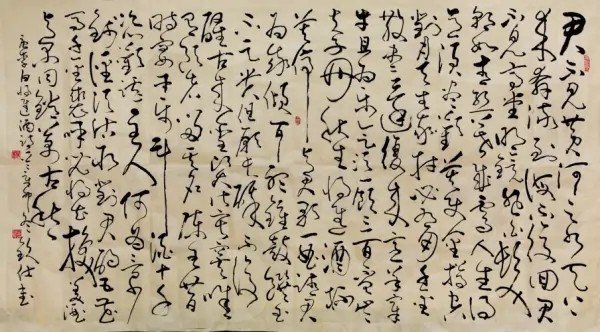 君不見黄河之水天上
来奔流到海不復回君
不見高堂明鏡悲白髮
朝如青丝暮成雪人生得
意須尽歡莫使金樽空
對月天生我材必有用千金
散尽還復来烹羊宰
牛且为乐会須一飲三百杯岑
夫子丹丘生将進酒杯
莫停与君歌一曲請君
为我傾耳聽鐘鼓饌玉
不足貴但願长醉不復
醒古来圣贤皆寂寞惟
有飲者留其名陈王昔
時宴平乐斗酒十千
恣歡謔主人何为言少
钱徑須沽取對君酌五花
馬千金裘呼兒将出换美酒
与尔同銷萬古愁
唐李白将進酒詩